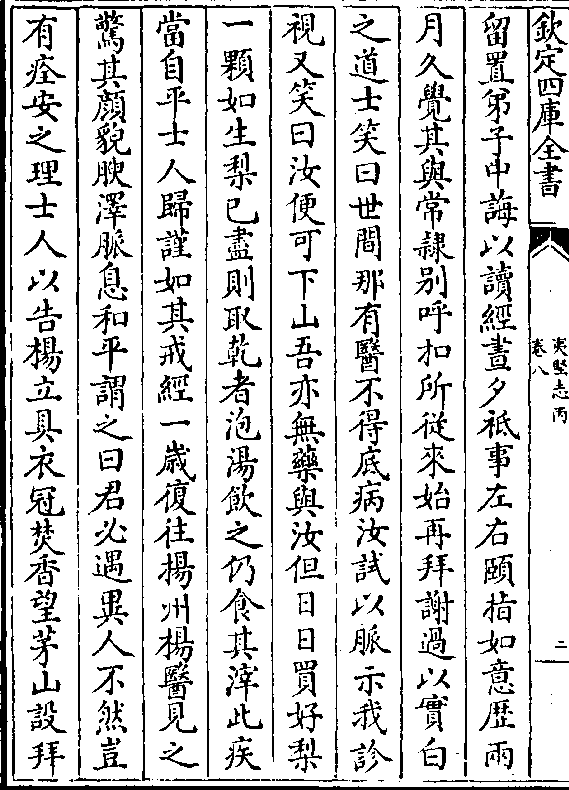 欽定四庫全書
夷堅志丙
卷八
二
留置弟子中誨以讀經晝夕祗事左右頤指如意歴兩
月久覺其與常隷别呼扣所従來始再拜謝過以實白
之道士笑曰世間那有醫不得底病汝試以脈示我診
視又笑曰汝便可下山吾亦無藥與汝但日日買好梨
一顆如生梨已盡則取乾者泡湯飲之仍食其滓此疾
當自平士人歸謹如其戒經一嵗復往揚州楊醫見之
驚其顔貌腴澤脈息和平謂之曰君必遇異人不然豈
有痊安之理士人以告楊立具衣冠焚香望茅山設拜